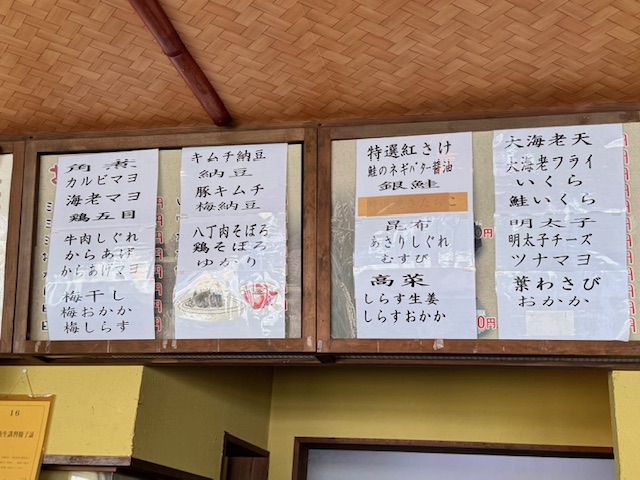 角煮
カルビマヨ
海老マヨ
鶏五目
牛肉しぐれ
からあげ
からあげマヨ
梅干し
梅おかか
梅しらす
キムチ納豆
納豆
豚キムチ
梅納豆
八丁肉そぼろ
鶏そぼろ
ゆかり
特選紅さけ
鮭のネギバター醤油
銀鮭
昆布
あさりしぐれ
むすび
高菜
しらす生姜
しらすおかか
0円
大海老天
大海老フライ
いくら
鮭いくら
明太子
明太子チーズ
ツナマヨ
葉わさび
おかか
16